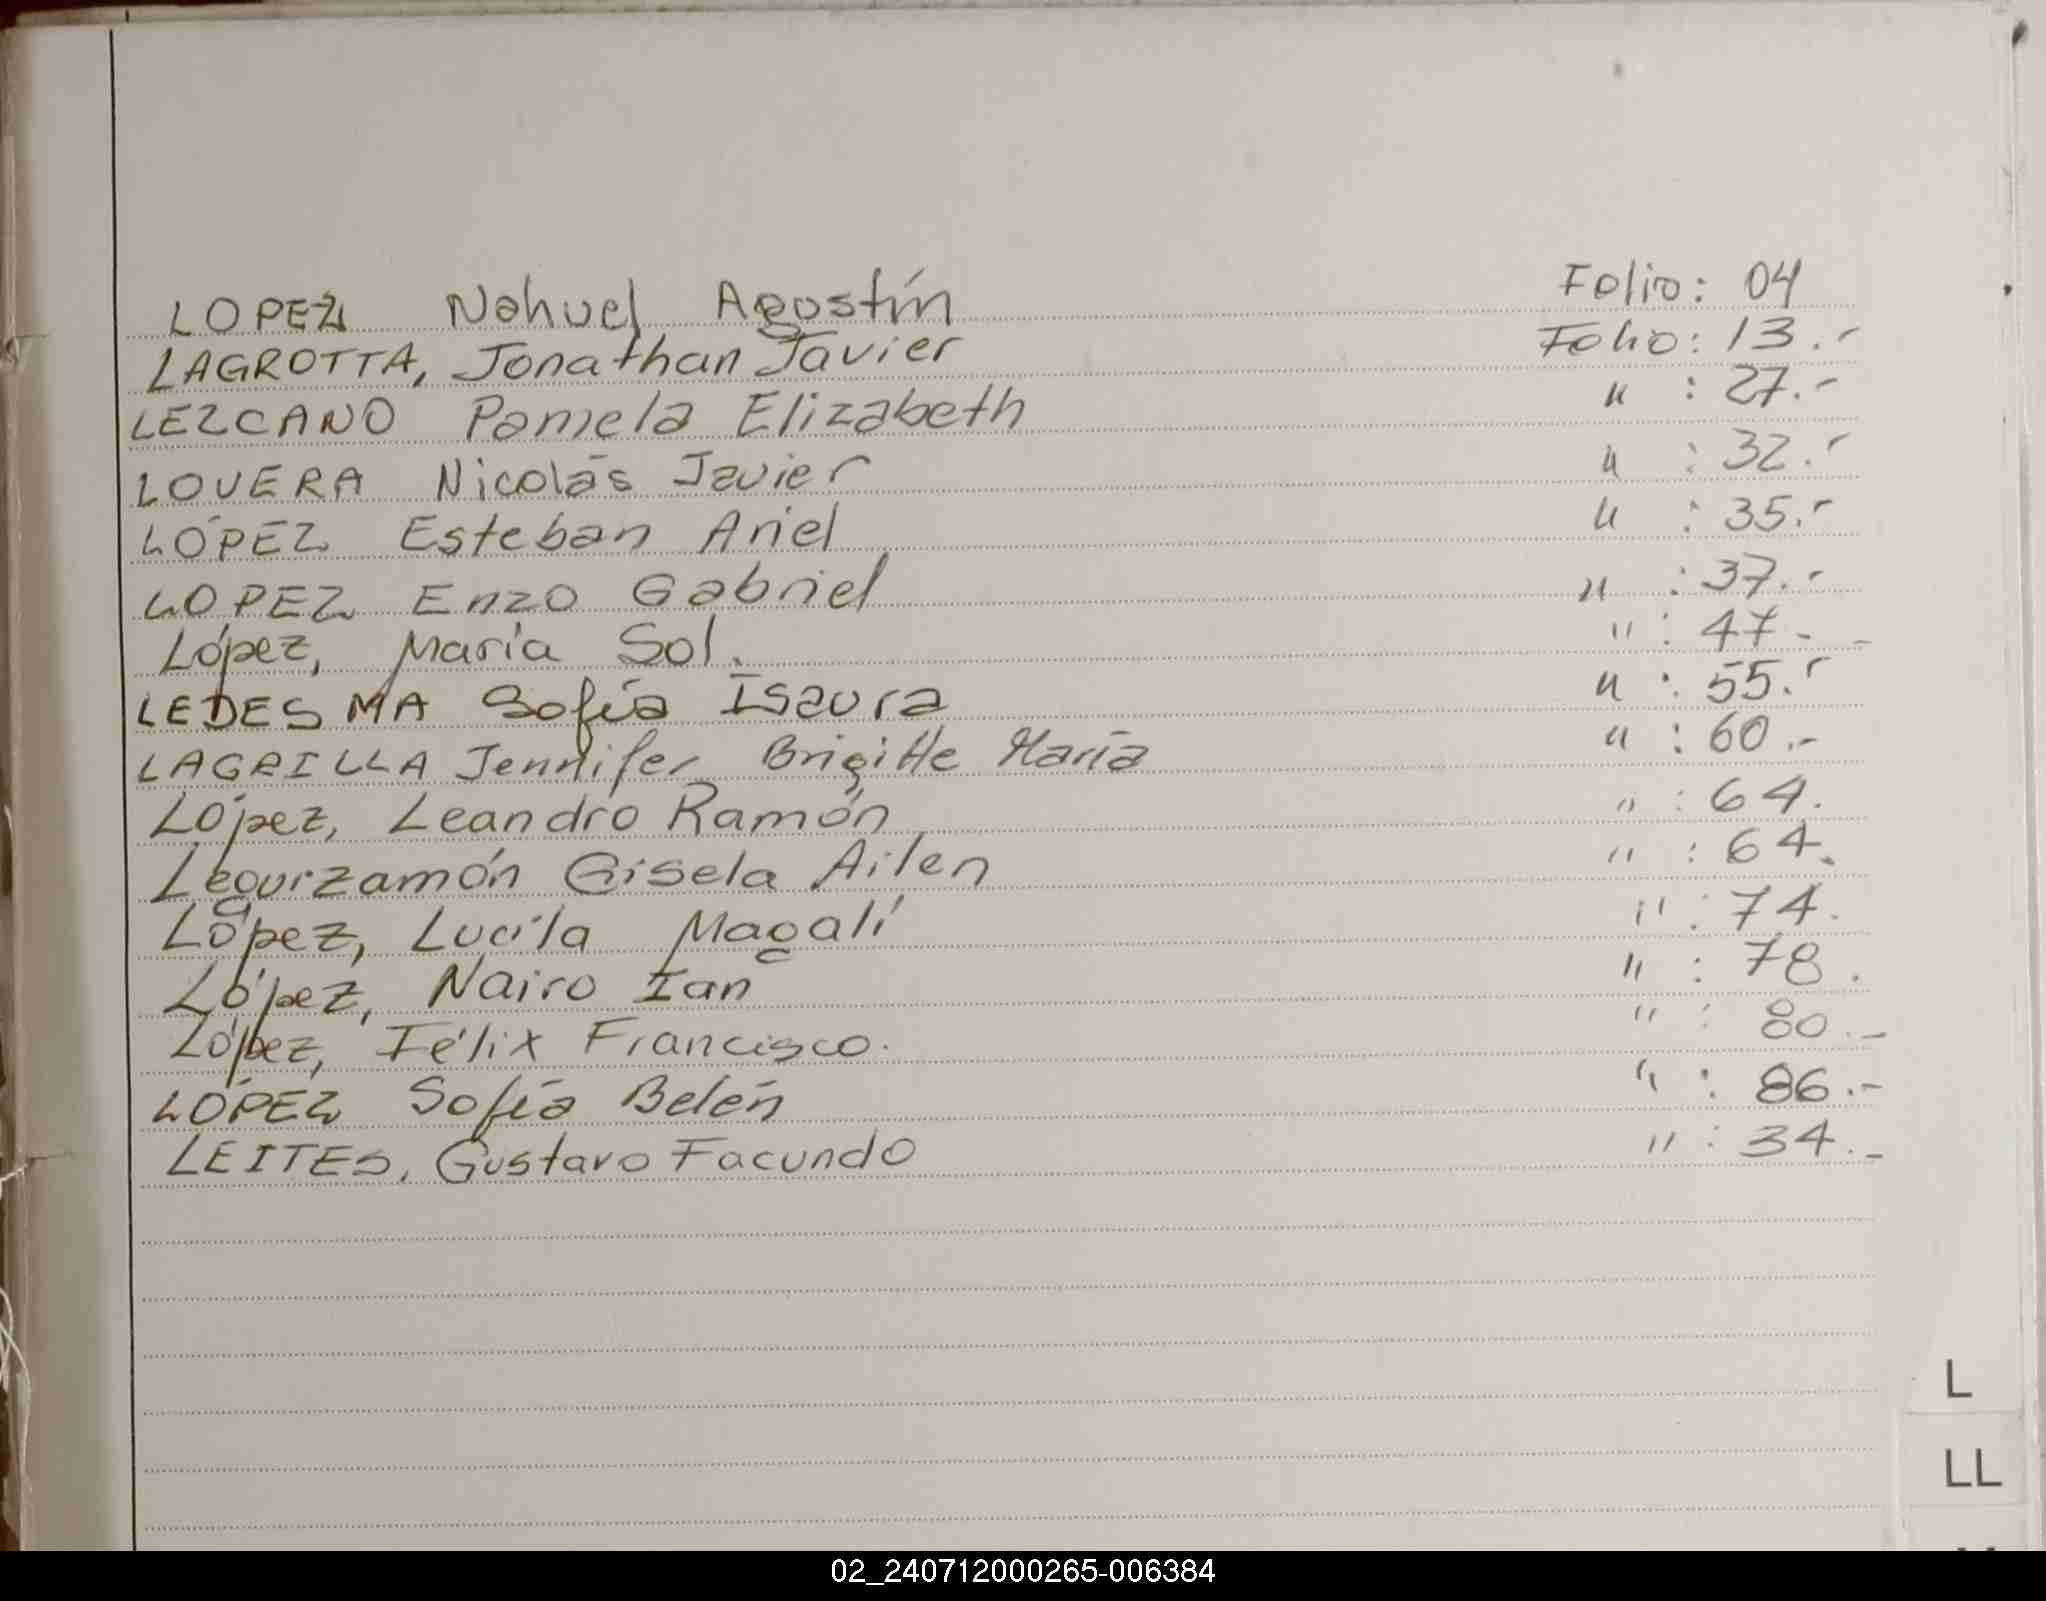 LOPEZ Nahuel Agustín Folio: 04
LAGROTTA, Jonathan Javier Folio: 13.-
LEZCANO Pamela Elizabeth " : 27.-
LOVERA Nicolás Javier " : 32.-
LÓPEZ Esteban Ariel " : 35.-
LOPEZ Enzo Gabriel " : 37.-
López, María Sol. " : 47.-
LEDESMA Sofía Isaura " : 55.-
LAGRILLA Jennifer Brigitte María " : 60.-
López, Leandro Ramón " : 64.
Leguizamón Gisela Ailen " : 64.
López, Lucila Magalí " : 74.
López, Nairo Ian " : 78.
López, Félix Francisco. " : 80.-
LÓPEZ Sofía Belén " : 86.-
LEITES, Gustavo Facundo " : 34.-
L
LL
02_240712000265-006384